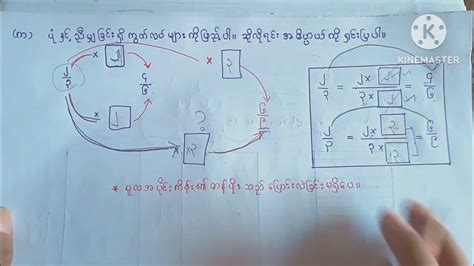 (က) ပုံနှင့် ညီမျှခြင်းရှိ ကွက်လပ်များကိုဖြည့်ပါ။ ဆိုလိုရင်း အဓိပ္ပာယ်ကို ရှင်းပြပါ။
KINEMASTER
၂/၃
× ၂
× ၂
၄/၆
× ၃
?
× ၃
၆/၉
၂/၃ = ၂× ၂ / ၃× ၂ = ၄/၆
၂/၃ = ၂× ၃ / ၃× ၃ = ၆/၉
* မူလအပိုင်းကိန်း၏တန်ဖိုးသည် ပြောင်းလဲခြင်းမရှိပေ။